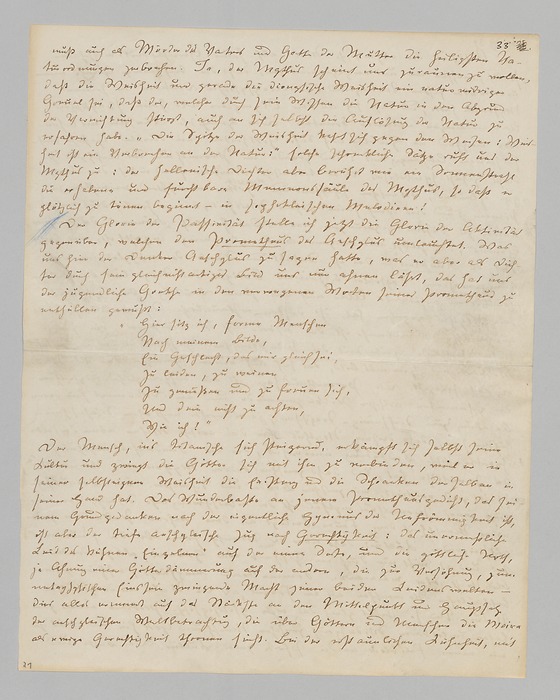 33
muß auch als Mörder des Vaters und Gatte der Mutter die heiligsten Na-
turordnungen zerbrechen. Ja, der Mythus scheint uns zuraunen zu wollen,
daß die Weisheit und gerade die dionysische Weisheit ein naturwidriger
Greuel sei, daß der, welcher durch sein Wissen die Natur in den Abgrund
der Vernichtung stürzt, auch an sich selbst die Auflösung der Natur zu
erfahren habe. „Die Spitze der Weisheit kehrt sich gegen den Weisen: Weis-
heit ist ein Verbrechen an der Natur:" solche schreckliche Sätze ruft uns der
Mythus zu: der hellenische Dichter aber berührt wie ein Sonnenstrahl
die erhabene und furchtbare Memnonssäule des Mythus, so daß er
plötzlich zu tönen beginnt – in sophokleischen Melodieen!
Der Glorie der Passivität stelle ich jetzt die Glorie der Aktivität
gegenüber, welche den Prometheus des Aeschylus umleuchtet. Was
uns hier der Denker Aeschylus zu sagen hatte, was er aber als Dich-
ter durch sein gleichnißartiges Bild uns nur ahnen läßt, das hat uns
der jugendliche Goethe in den verwegenen Worten seines Prometheus zu
enthüllen gewußt:
„Hier sitz ich, forme Menschen
Nach meinem Bilde,
Ein Geschlecht, das mir gleich sei,
Zu leiden, zu weinen
Zu genießen und zu freuen sich,
Und dein nicht zu achten,
Wie ich!"
Der Mensch, ins Titanische sich steigernd, erkämpft sich selbst seine
Kultur und zwingt die Götter sich mit ihm zu verbinden, weil er in
seiner selbsteignen Weisheit die Existenz und die Schranken derselben in
seiner Hand hat. Das Wunderbarste an jenem Prometheusgedicht, das sei-
nem Grundgedanken nach der eigentliche Hymnus der Unfrömmigkeit ist,
ist aber der tiefe aeschyleische Zug nach Gerechtigkeit: das unermeßliche
Leid des kühnen „Einzelnen" auf der einen Seite, und die göttliche Noth,
ja Ahnung einer Götterdämmerung auf der andern, die zur Versöhnung, zum
metaphysischen Einssein zwingende Macht jener beiden Leidenswelten –
dies alles erinnert auf das Stärkste an den Mittelpunkt und Hauptsatz
der aeschyleischen Weltbetrachtung, die über Göttern und Menschen die Moira
als ewige Gerechtigkeit thronen sieht. Bei der erstaunlichen Kühnheit, mit